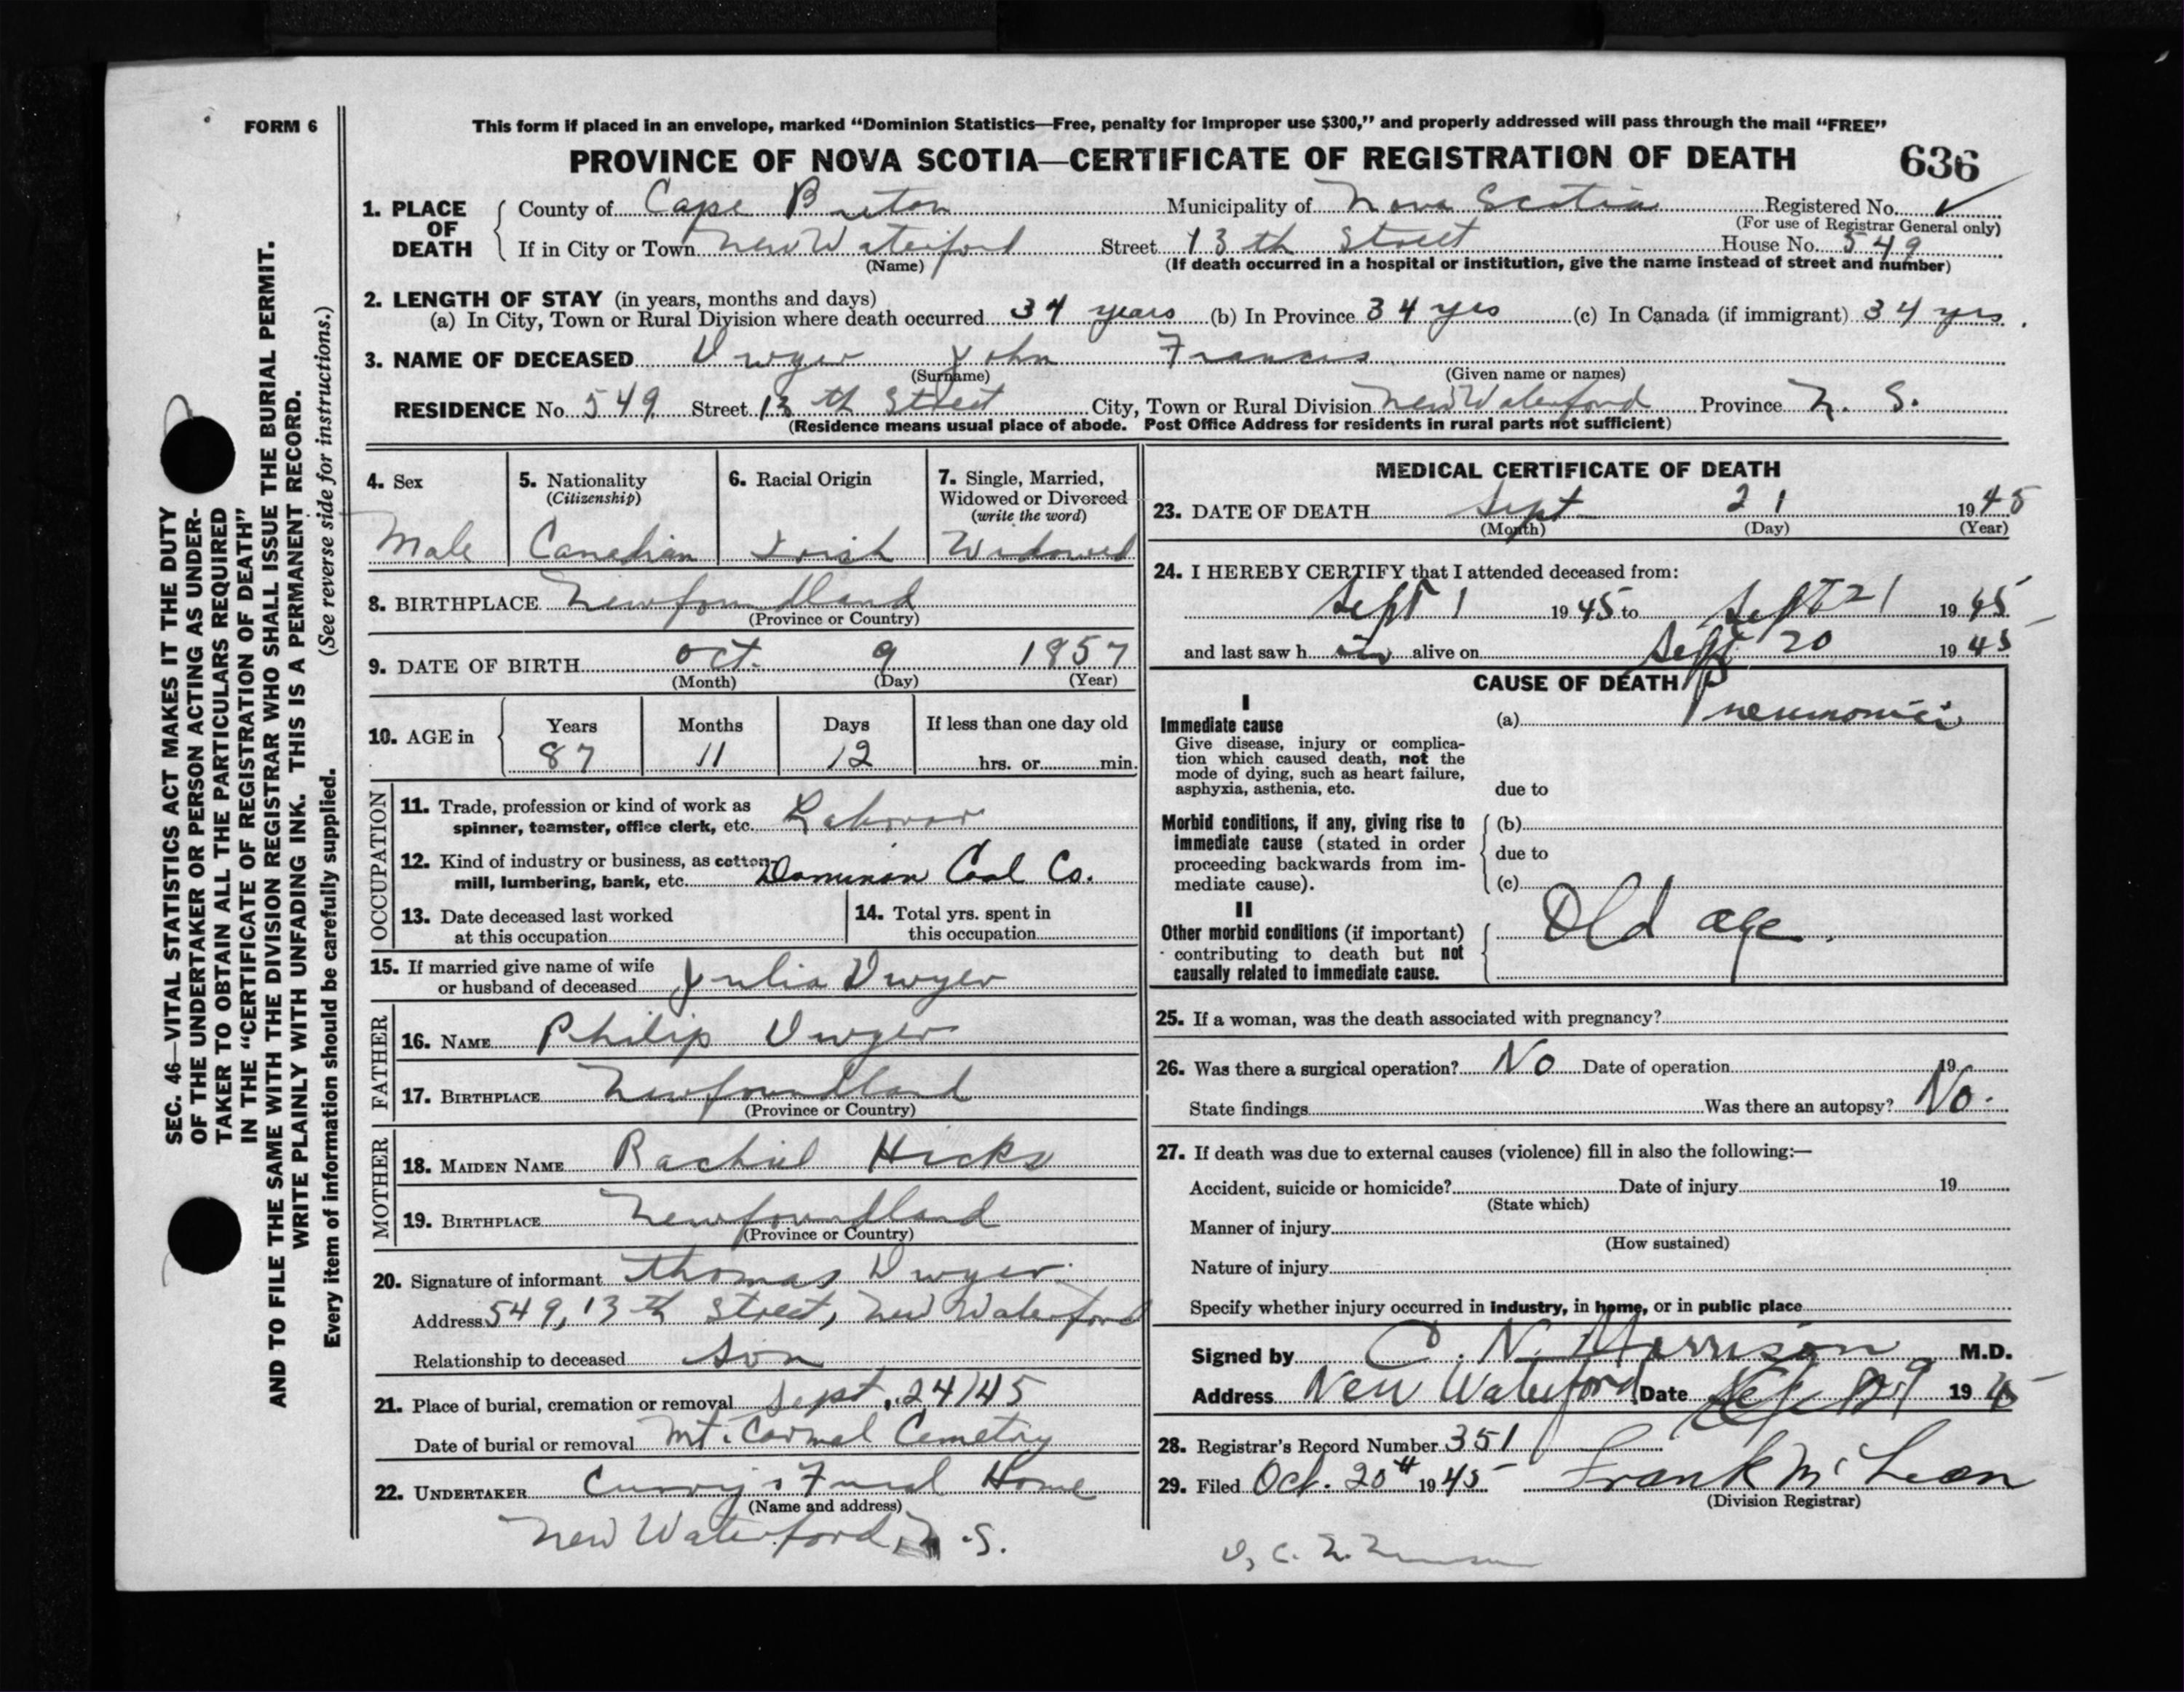 FORM 6
This form if placed in an envelope, marked “Dominion Statistics—Free, penalty for improper use $300,” and properly addressed will pass through the mail “FREE”
PROVINCE OF NOVA SCOTIA—CERTIFICATE OF REGISTRATION OF DEATH 636
1. PLACE OF DEATH
County of Cape Breton Municipality of Nova Scotia Registered No. ✓
(For use of Registrar General only)
If in City or Town New Waterford Street 13 th Street House No. 549
(Name) (If death occurred in a hospital or institution, give the name instead of street and number)
2. LENGTH OF STAY (in years, months and days)
(a) In City, Town or Rural Division where death occurred 34 years (b) In Province 34 yrs (c) In Canada (if immigrant) 34 yrs.
3. NAME OF DECEASED Dwyer John Francis
(Surname) (Given name or names)
RESIDENCE No. 549 Street 13 th Street City, Town or Rural Division New Waterford Province N. S.
(Residence means usual place of abode. Post Office Address for residents in rural parts not sufficient)
4. Sex
Male
5. Nationality
(Citizenship)
Canadian
6. Racial Origin
Irish
7. Single, Married,
Widowed or Divorced
(write the word)
Widowed
8. BIRTHPLACE Newfoundland
(Province or Country)
9. DATE OF BIRTH Oct. 9 1857
(Month) (Day) (Year)
10. AGE in
Years Months Days If less than one day old
87 11 12 hrs. or min.
OCCUPATION
11. Trade, profession or kind of work as
spinner, teamster, office clerk, etc. Laborer
12. Kind of industry or business, as cotton-
mill, lumbering, bank, etc. Dominion Coal Co.
13. Date deceased last worked
at this occupation
14. Total yrs. spent in
this occupation
15. If married give name of wife
or husband of deceased Julia Dwyer
FATHER
16. NAME Philip Dwyer
17. BIRTHPLACE Newfoundland
(Province or Country)
MOTHER
18. MAIDEN NAME Rachiel Hicks
19. BIRTHPLACE Newfoundland
(Province or Country)
20. Signature of informant Thomas Dwyer.
Address 549, 13 th Street, New Waterford
Relationship to deceased Son
21. Place of burial, cremation or removal Sept. 24/45
Date of burial or removal Mt. Carmel Cemetry
22. UNDERTAKER Curry's Funeral Home
(Name and address)
New Waterford, N.S.
MEDICAL CERTIFICATE OF DEATH
23. DATE OF DEATH Sept 21 1945
(Month) (Day) (Year)
24. I HEREBY CERTIFY that I attended deceased from:
Sept 1 1945 to Sept 21 1945
and last saw h im alive on Sept 20 1945
CAUSE OF DEATH
I
Immediate cause
Give disease, injury or complica-
tion which caused death, not the
mode of dying, such as heart failure,
asphyxia, asthenia, etc.
(a) Pneumonia
due to
Morbid conditions, if any, giving rise to
immediate cause (stated in order
proceeding backwards from im-
mediate cause).
(b)
due to
(c)
II
Other morbid conditions (if important)
contributing to death but not
causally related to immediate cause.
Old age.
25. If a woman, was the death associated with pregnancy?
26. Was there a surgical operation? No Date of operation 19
State findings Was there an autopsy? No.
27. If death was due to external causes (violence) fill in also the following:—
Accident, suicide or homicide? Date of injury 19
(State which)
Manner of injury
(How sustained)
Nature of injury
Specify whether injury occurred in industry, in home, or in public place
Signed by C. N. Morrison M.D.
Address New Waterford Date 1945
28. Registrar's Record Number 351
29. Filed Oct. 20th 1945 Frank McLean
(Division Registrar)
SEC. 46—VITAL STATISTICS ACT MAKES IT THE DUTY
OF THE UNDERTAKER OR PERSON ACTING AS UNDER-
TAKER TO OBTAIN ALL THE PARTICULARS REQUIRED
IN THE “CERTIFICATE OF REGISTRATION OF DEATH”
AND TO FILE THE SAME WITH THE DIVISION REGISTRAR WHO SHALL ISSUE THE BURIAL PERMIT.
WRITE PLAINLY WITH UNFADING INK. THIS IS A PERMANENT RECORD.
Every item of information should be carefully supplied. (See reverse side for instructions.)